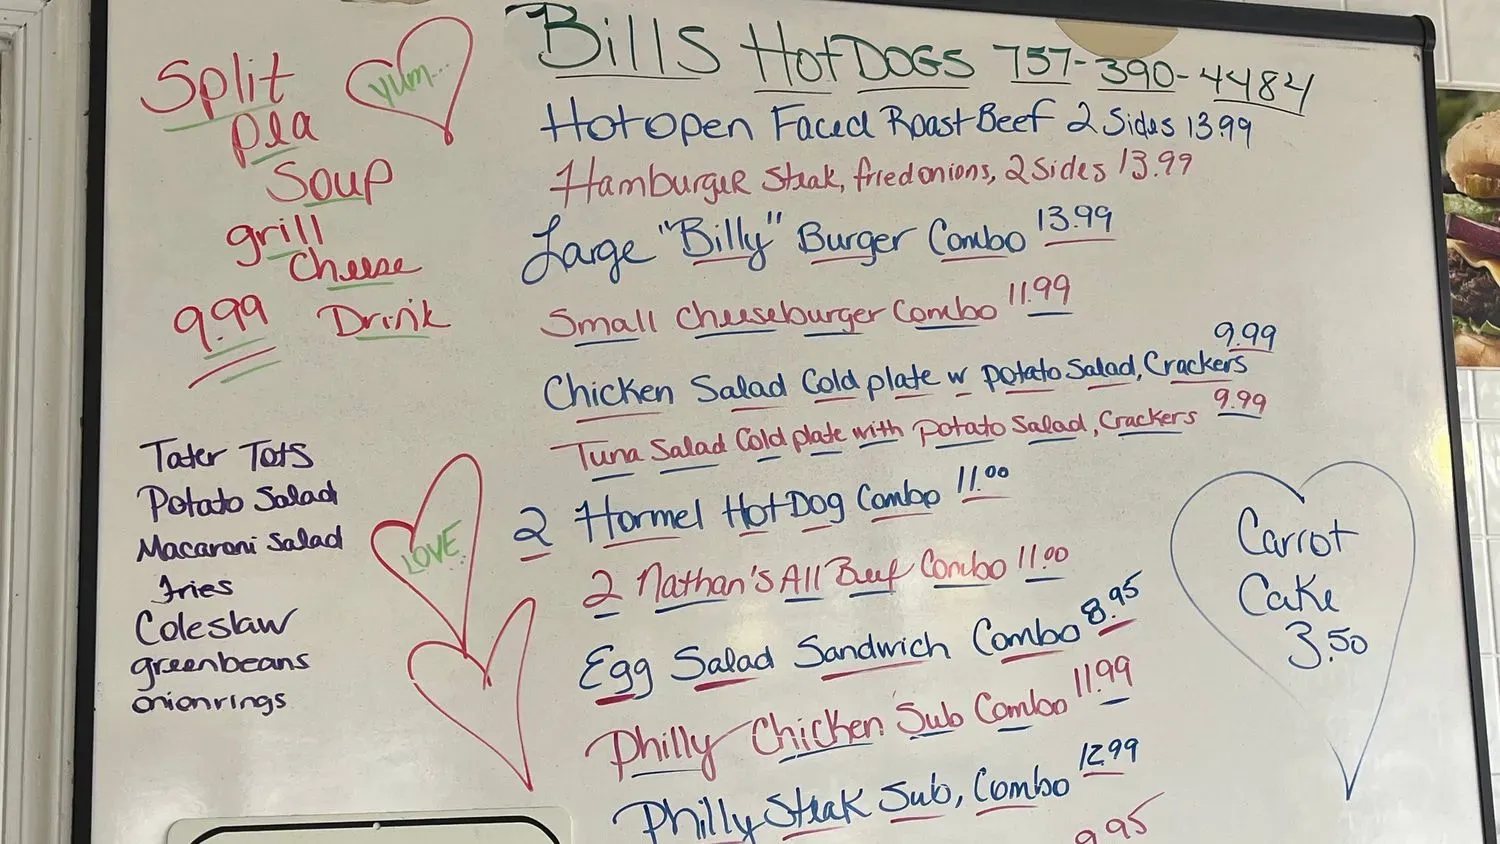 Bills HotDOGS 757-390-4484
Split
pea
Soup
grill
Cheese
9.99 Drink
yum...
Hot open Faced Roast Beef 2 Sides 13.99
Hamburger Steak, fried onions, 2 Sides 13.99
Large "Billy" Burger Combo 13.99
Small Cheeseburger Combo 11.99
Chicken Salad Cold plate w potato Salad, Crackers 9.99
Tuna Salad Cold plate with potato Salad, Crackers 9.99
2 Hormel Hot Dog Combo 11.00
2 Nathan's All Beef Combo 11.00
Egg Salad Sandwich Combo 8.95
Philly Chicken Sub Combo 11.99
Philly Steak Sub, Combo 12.99
9.95
Tater Tots
Potato Salad
Macaroni Salad
Fries
Coleslaw
greenbeans
onionrings
LOVE
Carrot
Cake
3.50